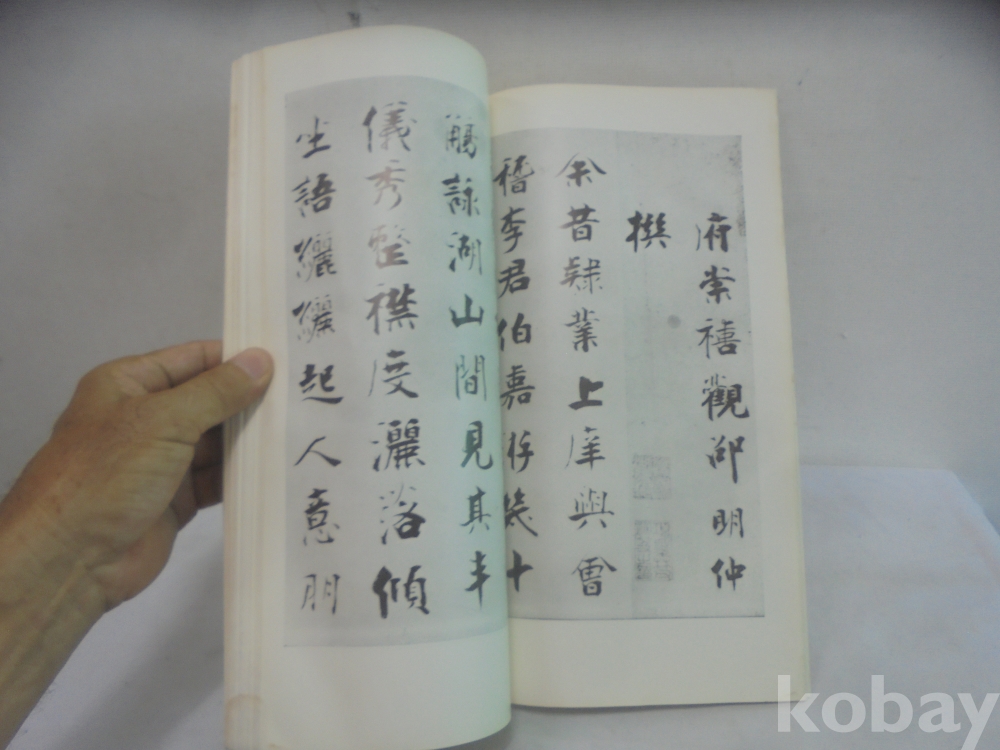 府崇禧觀邵明仲
撰
余昔隸業上庠與會
稽李君伯嘉游十
觴詠湖山間見其丰
儀秀整襟度灑落傾
坐語纚纚起人意朋
kobay